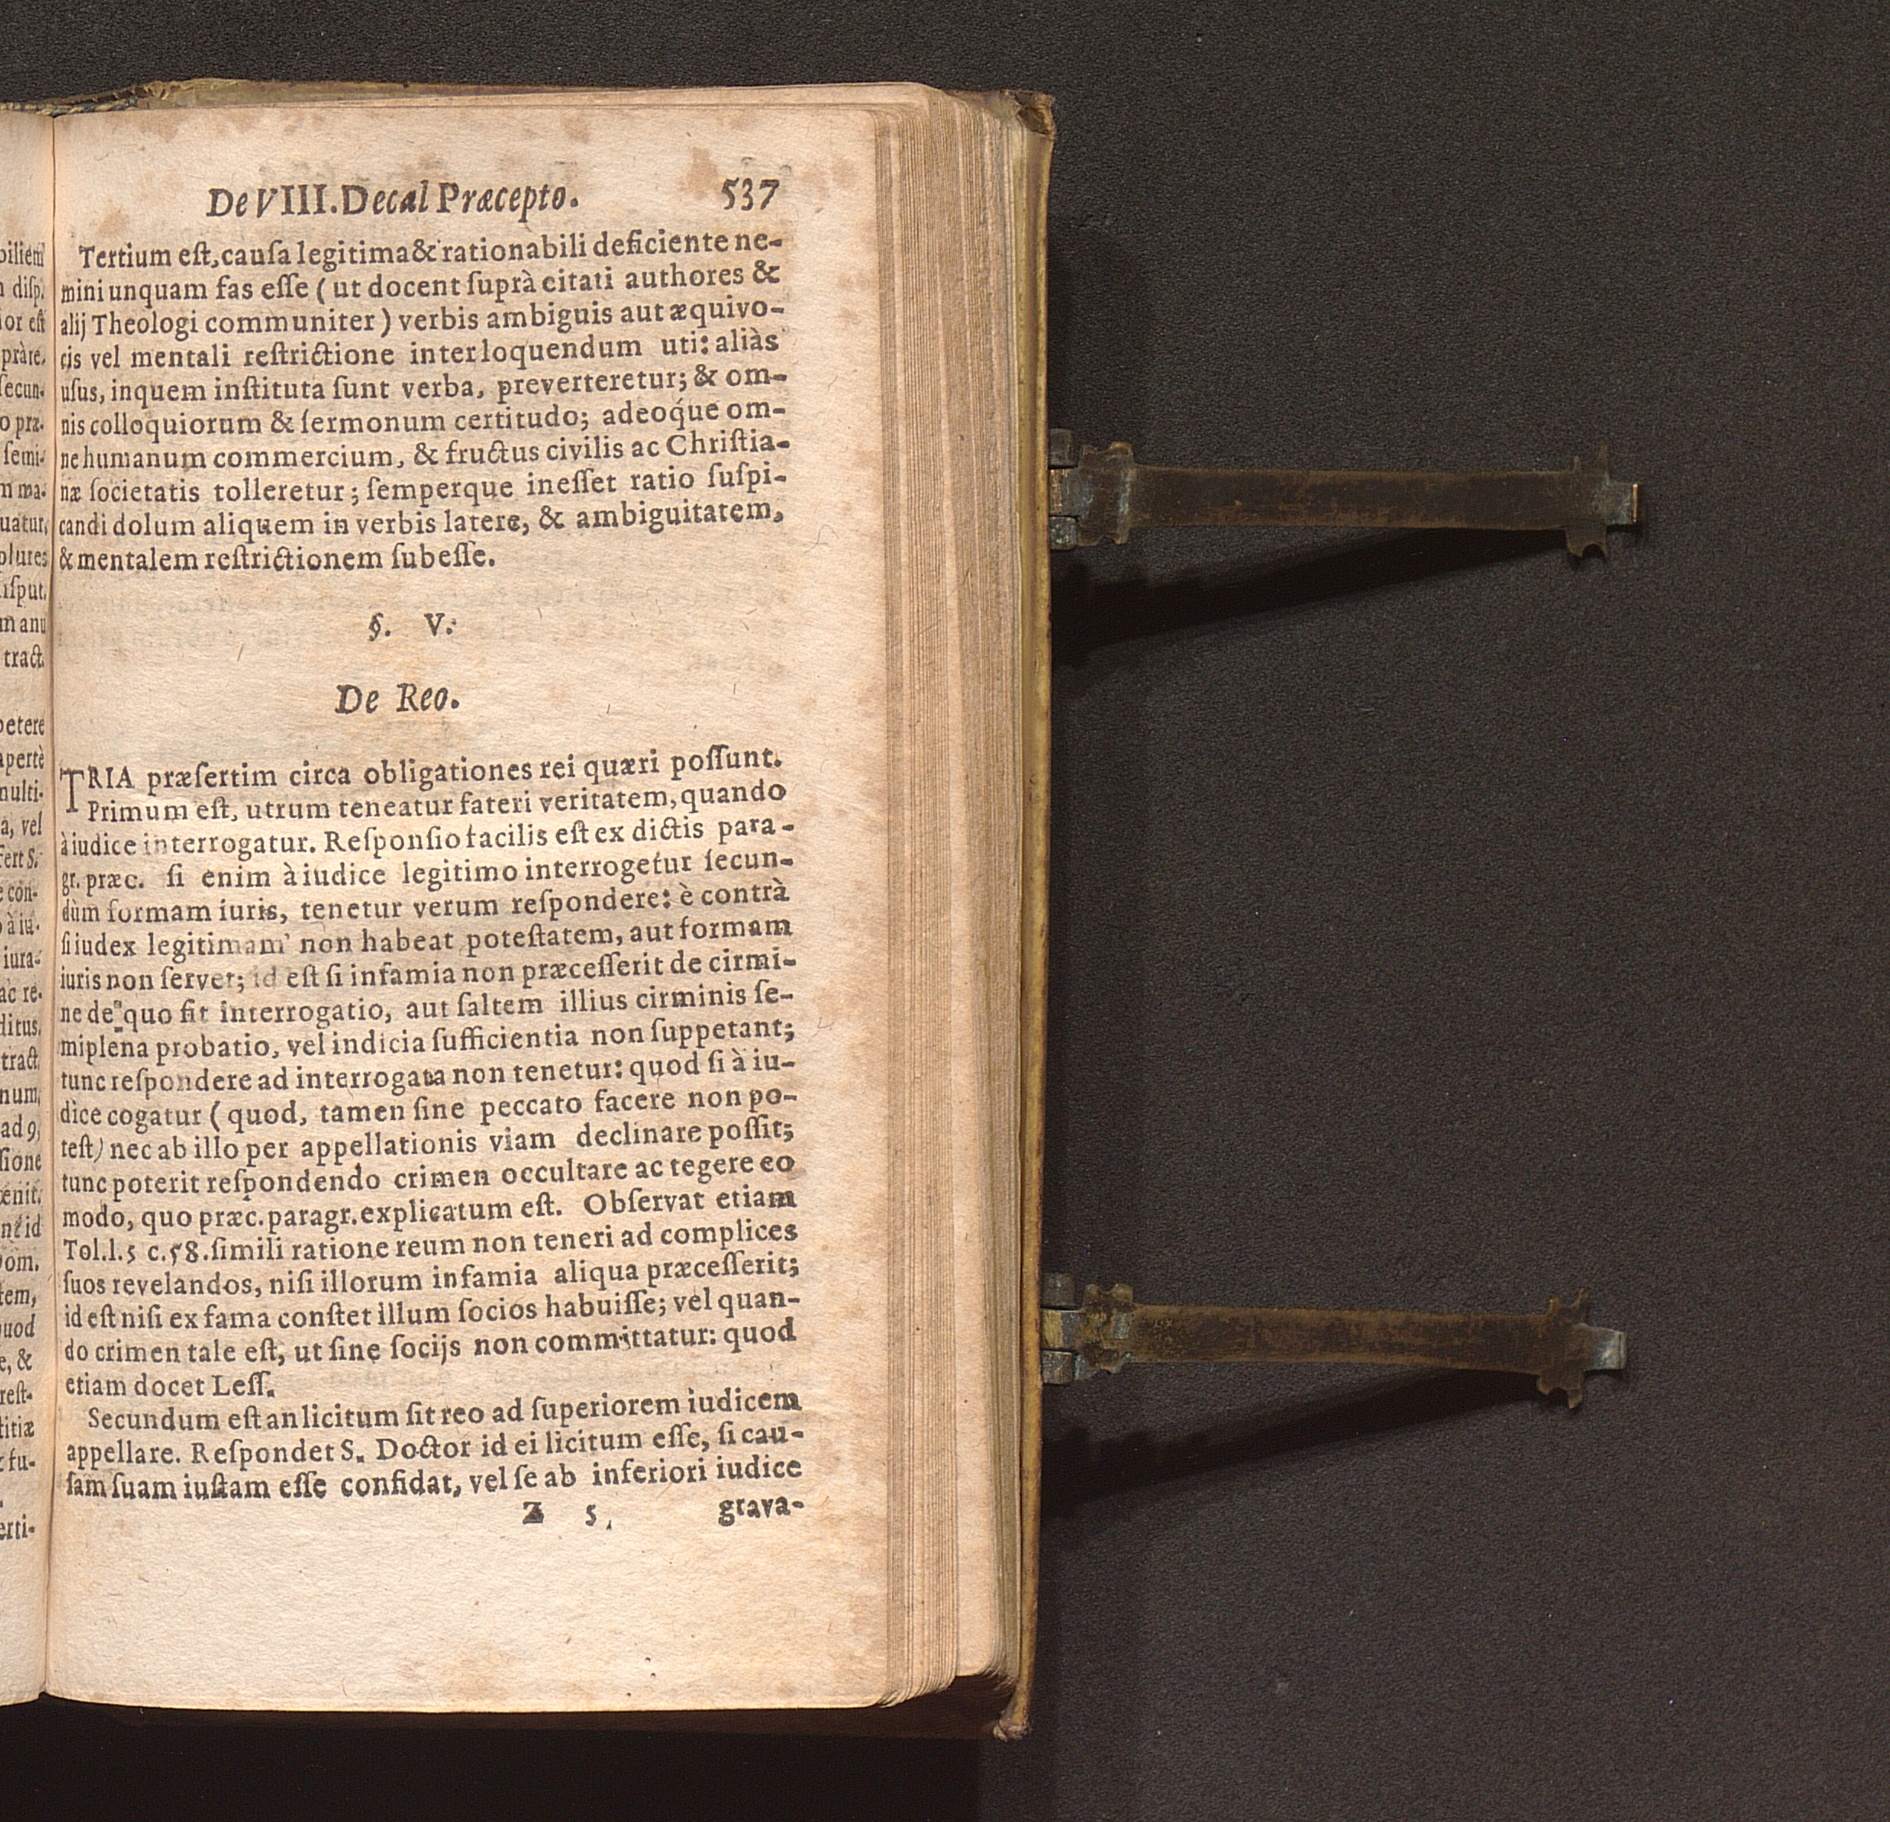 De VIII. Decal Præcepto. 537
Tertium eſt, cauſa legitima & rationabili deficiente ne-
mini unquam fas eſſe ( ut docent ſuprà citati authores &
alij Theologi communiter ) verbis ambiguis aut æquivo-
cis vel mentali reſtrictione interloquendum uti: aliàs
uſus, inquem inſtituta ſunt verba, preverteretur; & om-
nis colloquiorum & ſermonum certitudo; adeoq́ue om-
ne humanum commercium, & fructus civilis ac Chriſtia-
næ ſocietatis tolleretur; ſemperque ineſſet ratio ſuſpi-
candi dolum aliquem in verbis latere, & ambiguitatem,
& mentalem reſtrictionem ſubeſſe.
§. V.
De Reo.
TRIA præſertim circa obligationes rei quæri poſſunt.
Primum eſt, utrum teneatur fateri veritatem, quando
à iudice interrogatur. Reſponſio facilis eſt ex dictis para-
gr. præc. ſi enim à iudice legitimo interrogetur ſecun-
dùm formam iuris, tenetur verum reſpondere: è contrà
ſi iudex legitimam non habeat poteſtatem, aut formam
iuris non ſervet; id eſt ſi infamia non præceſſerit de cirmi-
ne de quo fit interrogatio, aut ſaltem illius cirminis ſe-
miplena probatio, vel indicia ſufficientia non ſuppetant;
tunc reſpondere ad interrogata non tenetur: quod ſi à iu-
dice cogatur ( quod, tamen ſine peccato facere non po-
teſt) nec ab illo per appellationis viam declinare poſſit;
tunc poterit reſpondendo crimen occultare ac tegere eo
modo, quo præc. paragr. explicatum eſt. Obſervat etiam
Tol. l. 5 c. 58. ſimili ratione reum non teneri ad complices
ſuos revelandos, niſi illorum infamia aliqua præceſſerit;
id eſt niſi ex fama conſtet illum ſocios habuiſſe; vel quan-
do crimen tale eſt, ut ſine ſocijs non committatur: quod
etiam docet Leſſ.
Secundum eſt an licitum ſit reo ad ſuperiorem iudicem
appellare. Reſpondet S. Doctor id ei licitum eſſe, ſi cau-
ſam ſuam iuſtam eſſe confidat, vel ſe ab inferiori iudice
Z 5. grava-